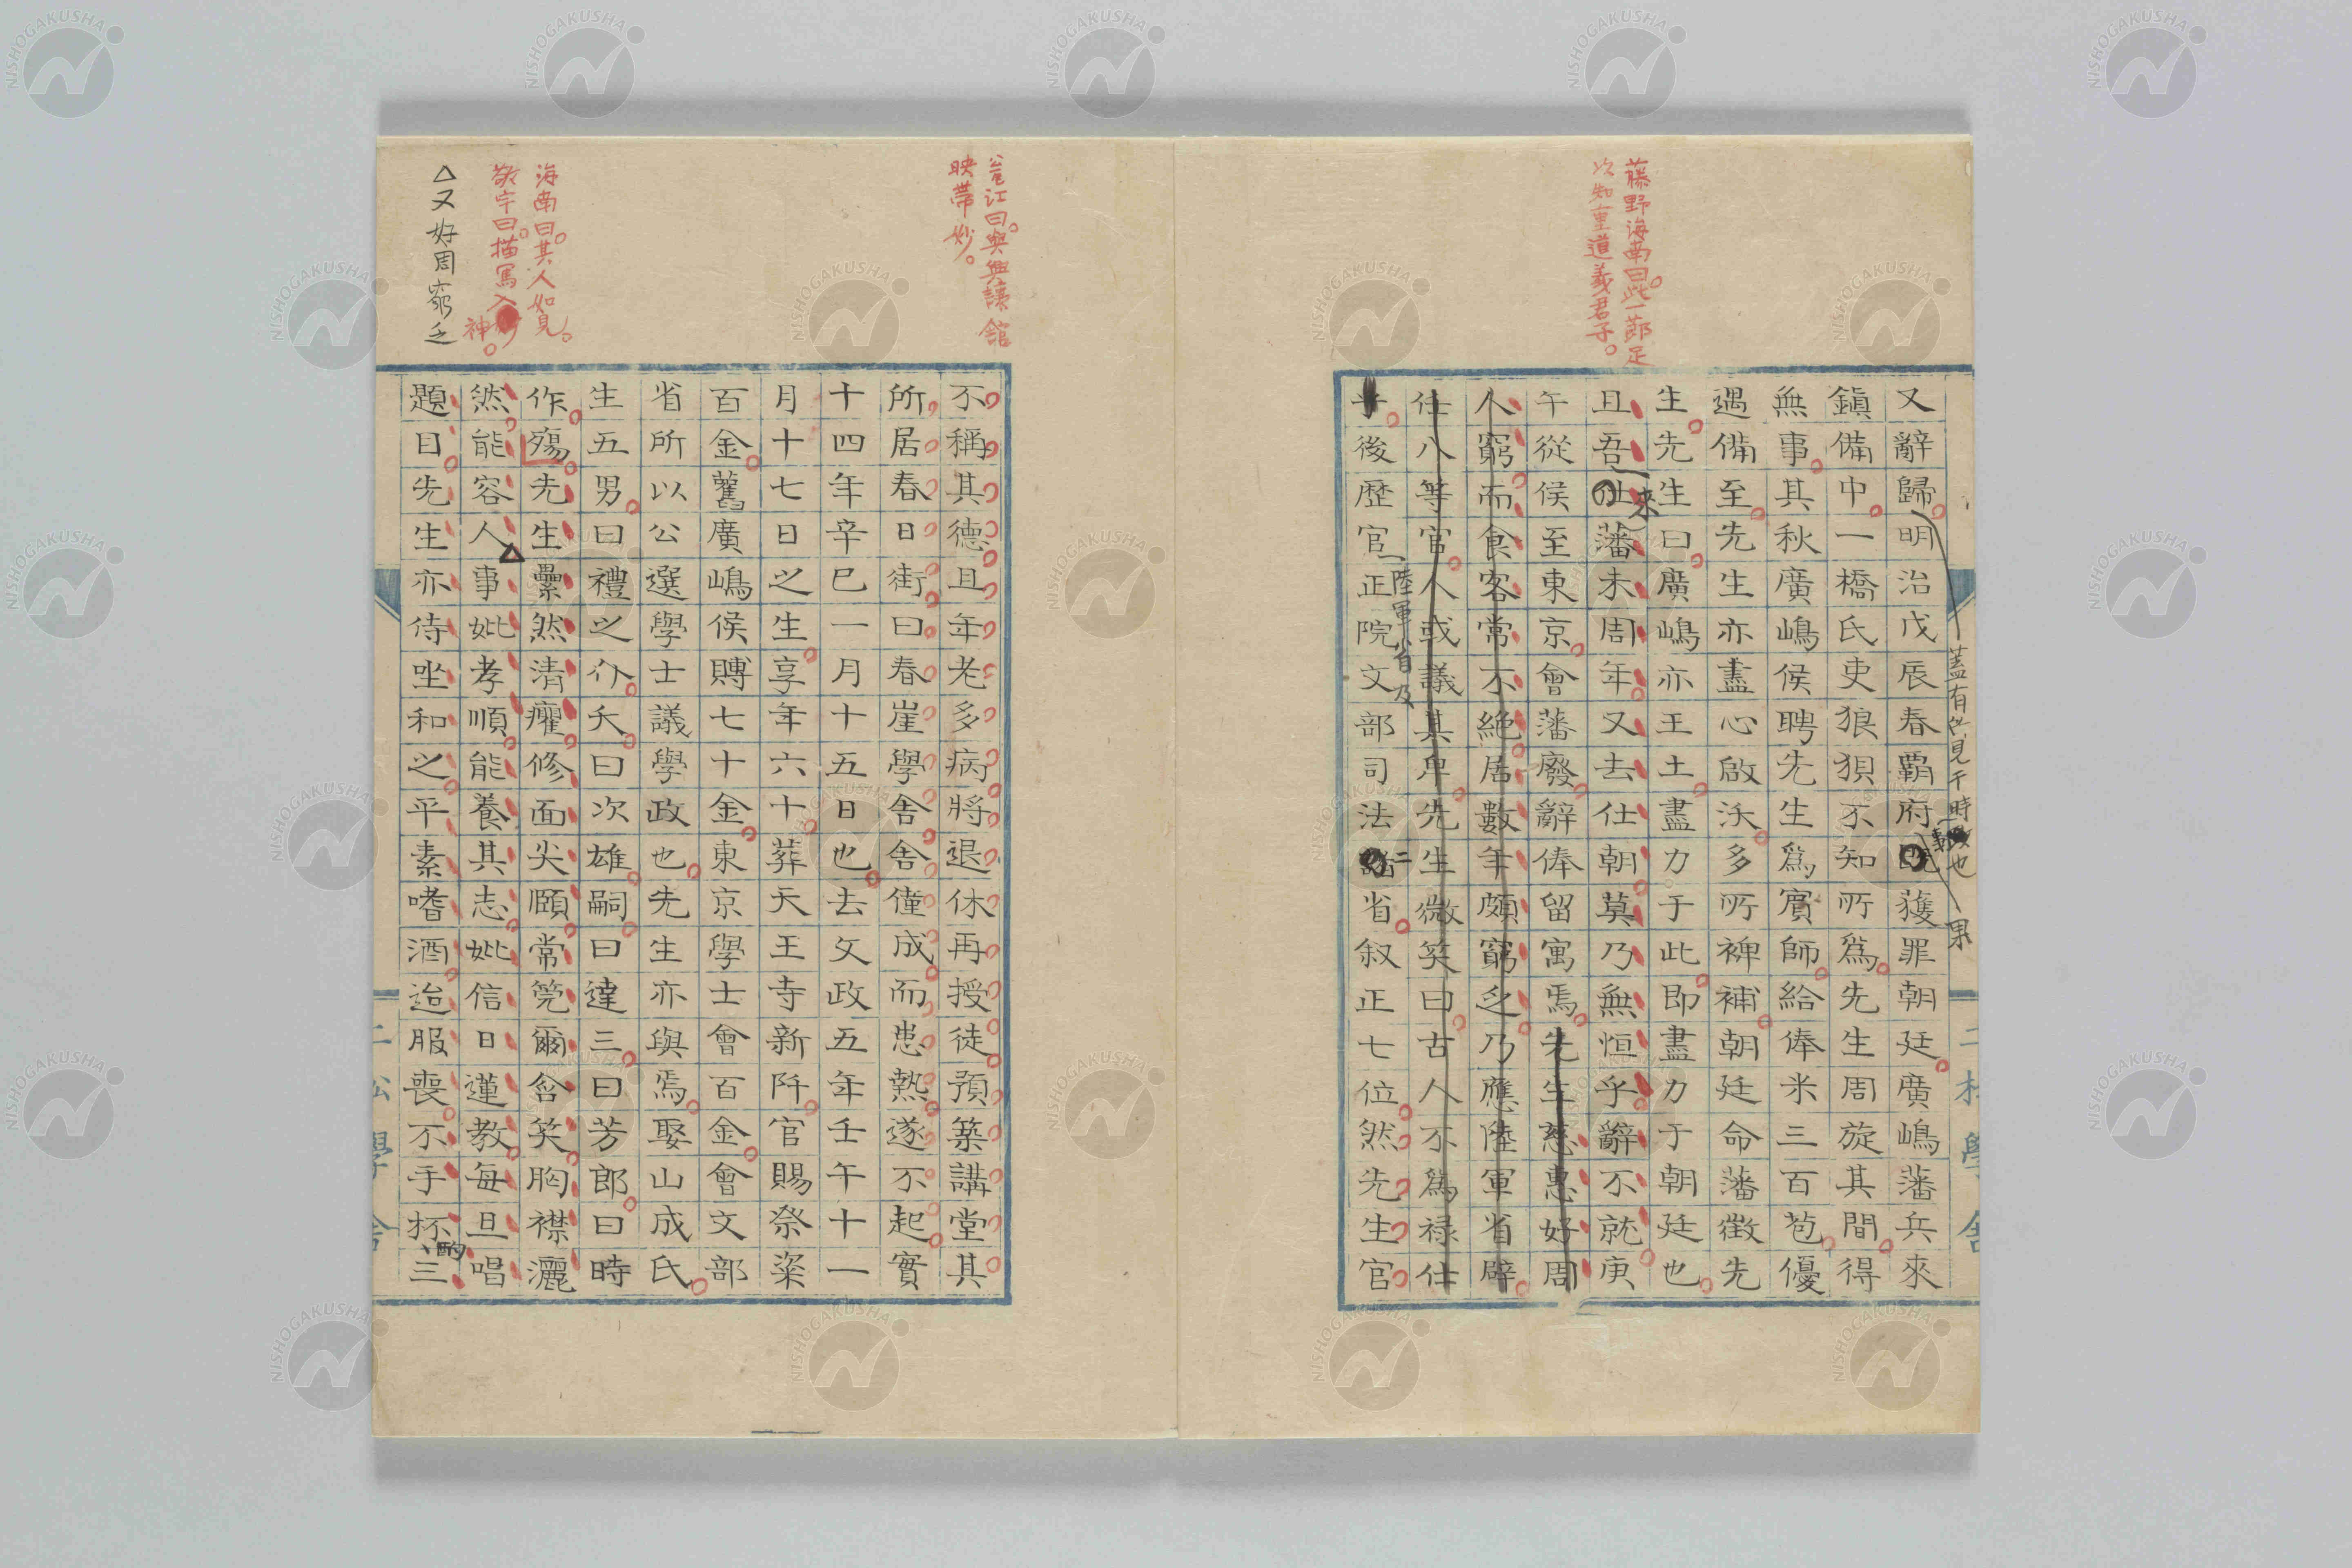 藤野海南曰此一節足
以知重道義君子
又辭歸明治戊辰春覇府獲罪朝廷廣嶋藩兵來
蓋有供見于時也
果
鎭備中一橋氏吏狼狽不知所爲先生周旋其間得
無事其秋廣嶋侯聘先生爲賓師給俸米三百苞優
遇備至先生亦盡心啟沃多所裨補朝廷命藩徴先
生先生曰廣嶋亦王土盡力于此即盡力于朝廷也
且吾仕藩未周年又去仕朝莫乃無恒乎辭不就庚
來
午從侯至東京會藩廢辭俸留寓焉先生慈惠好周
人窮而食客常不絶居數年頗窮乏乃應陸軍省辟
任八等官人或議其卑先生微笑曰古人不爲禄仕
乎後歷官正院文部司法省叙正七位然先生官
陸軍省及
二
翁江曰與興讓館
映帶妙
海南曰其人如見
敬宇曰描寫入神
△又好周窮乏
不稱其德且年老多病將退休再授徒預築講堂其
所居春日街曰春崖學舍舍僅成而患熱遂不起實
十四年辛巳一月十五日也去文政五年壬午十一
月十七日之生享年六十葬天王寺新阡官賜祭粢
百金舊廣嶋侯賻七十金東京學士會百金會文部
省所以公選學士議學政也先生亦與焉娶山成氏
生五男曰禮之介夭曰次雄嗣曰達三曰芳郎曰時
作殤先生纍然清癯修面尖頤常莞爾含笑胸襟灑
然能容人△事妣孝順能養其志妣信日蓮教每旦唱
題目先生亦侍坐和之平素嗜酒迨服喪不手杯三
酌
二松學舍